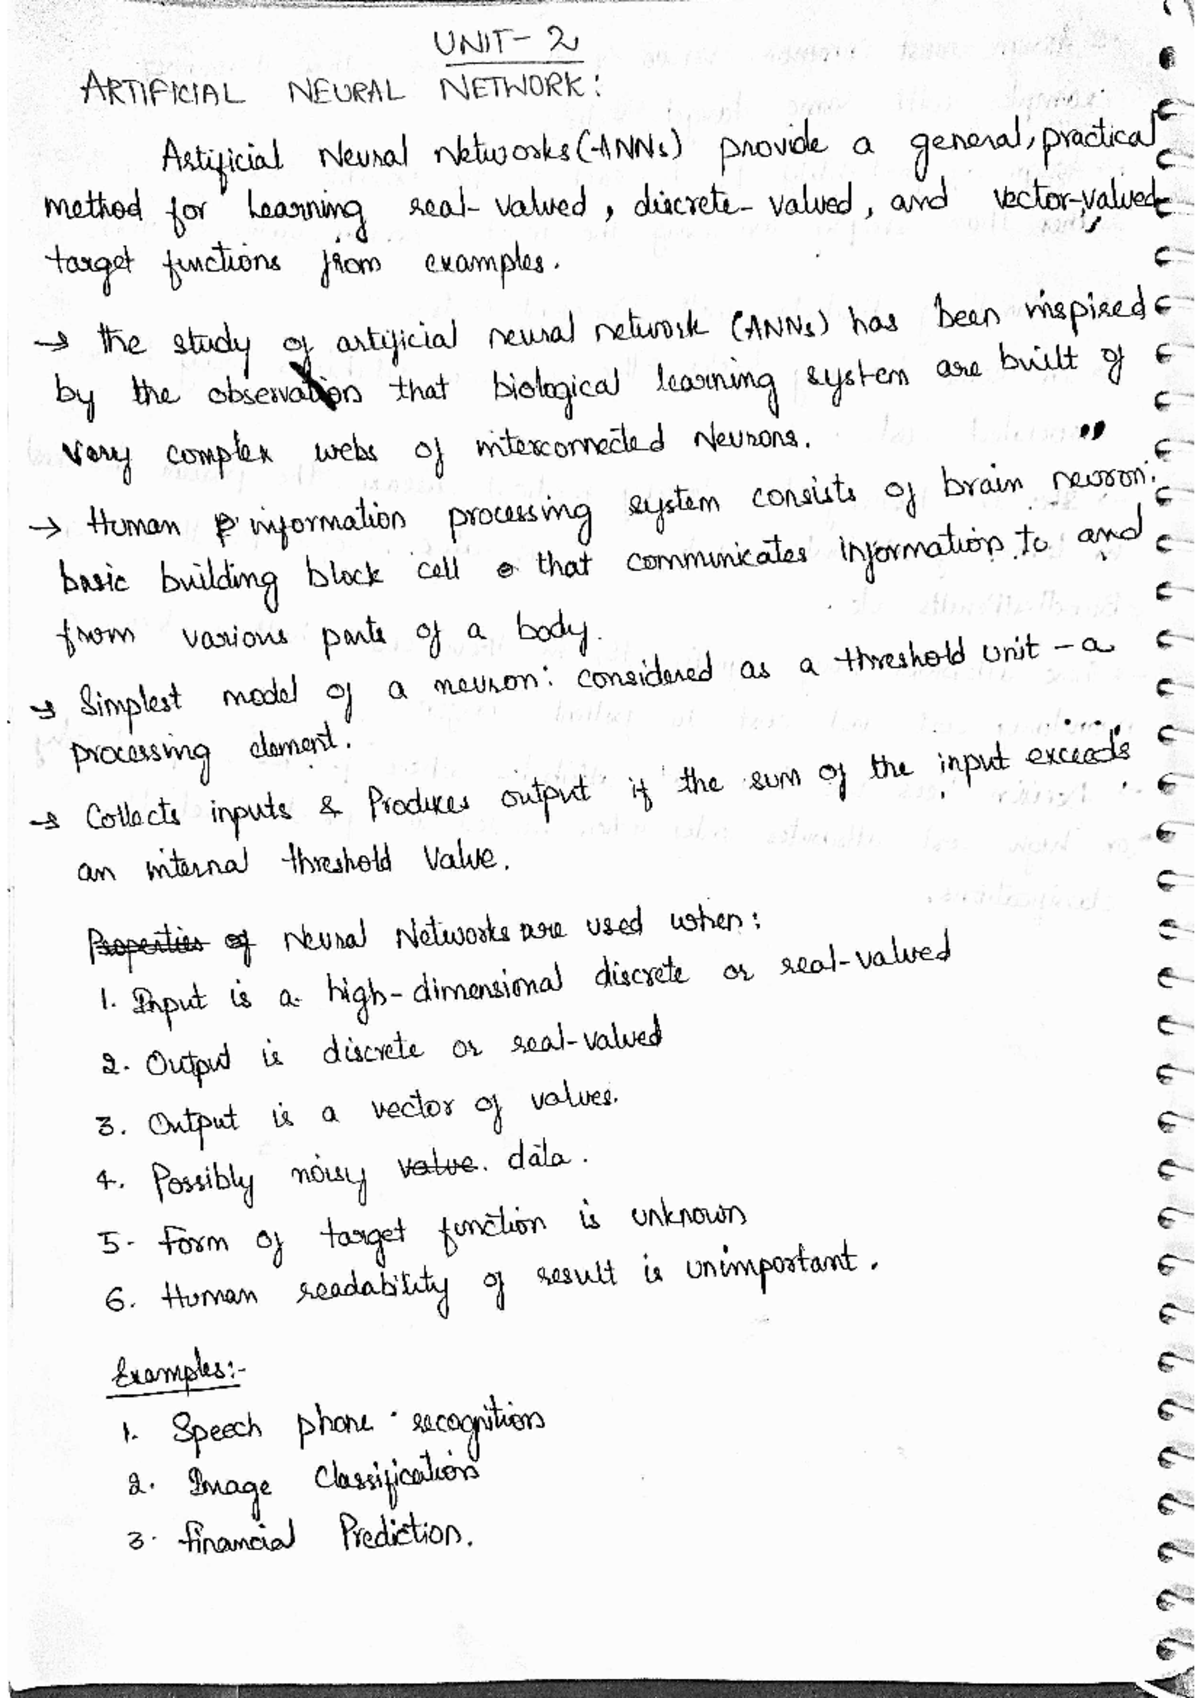 UNIT-2
ARTIFICIAL NEURAL NETWORK:
Artificial Neural Networks (ANNs) provide a general, practical
method for learning real-valued, discrete-valued, and vector-valued
target functions from examples.
→ the study of artificial neural network (ANNs) has been inspired
by the observation that biological learning system are built of
very complex webs of interconnected Neurons.
→ Human information processing system consists of brain neuron:
basic building block cell that communicates information to and
from various parts of a body.
→ Simplest model of a neuron: considered as a threshold unit - a
processing element.
→ Collects inputs & Produces output if the sum of the input exceeds
an internal threshold value.
Properties of Neural Networks are used when:
1. Input is a high-dimensional discrete or real-valued
2. Output is discrete or real-valued
3. Output is a vector of values.
4. Possibly noisy value. data.
5. Form of target function is unknown
6. Human readability of result is unimportant.
Examples:-
1. Speech phone recognition
2. Image Classification
3. financial Prediction.